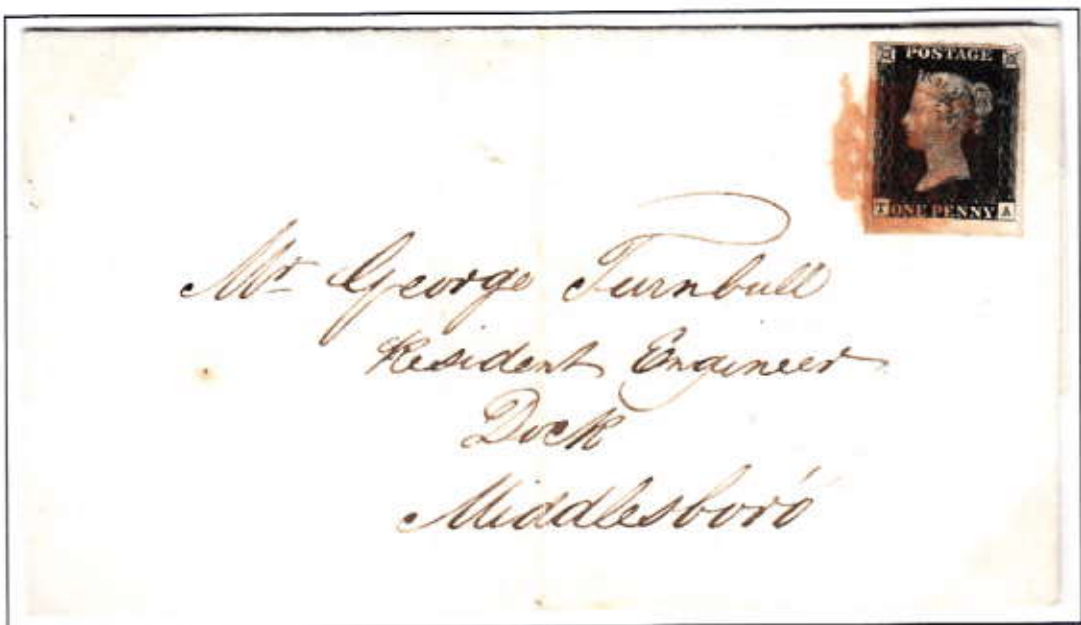 POSTAGE
T ONE PENNY A
Mr George Turnbull
Resident Engineer
Dock
Middlesboro'